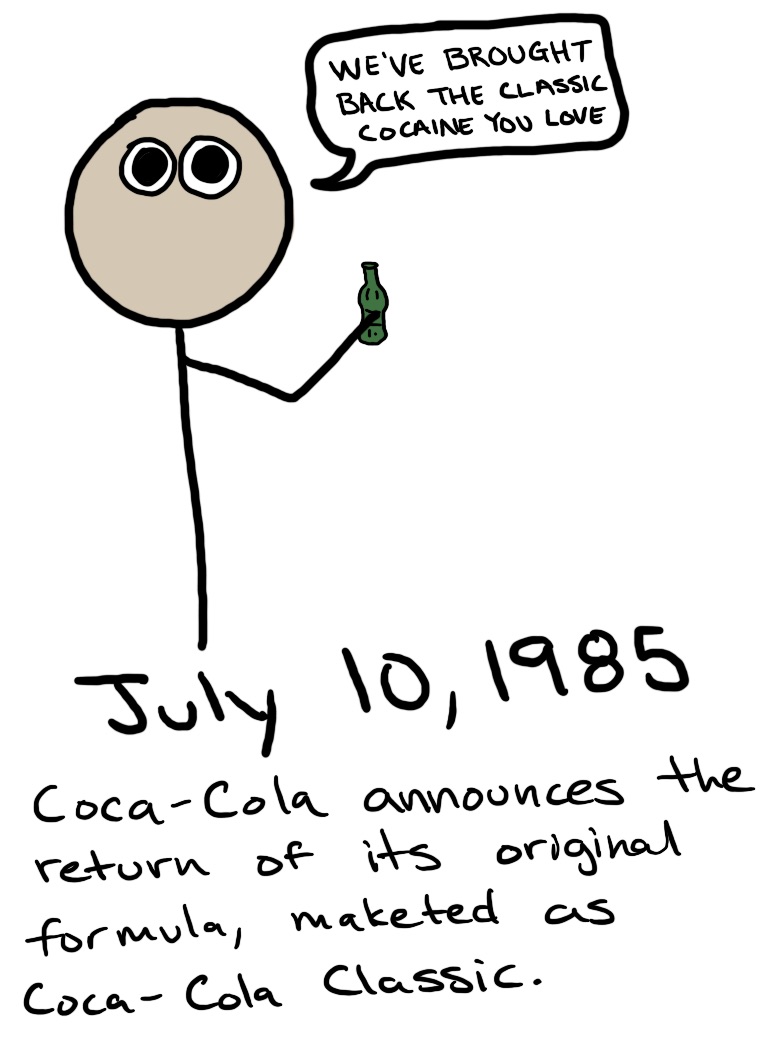 WE'VE BROUGHT
BACK THE CLASSIC
COCAINE YOU LOVE
July 10, 1985
Coca-Cola announces the
return of its original
formula, maketed as
Coca-Cola Classic.